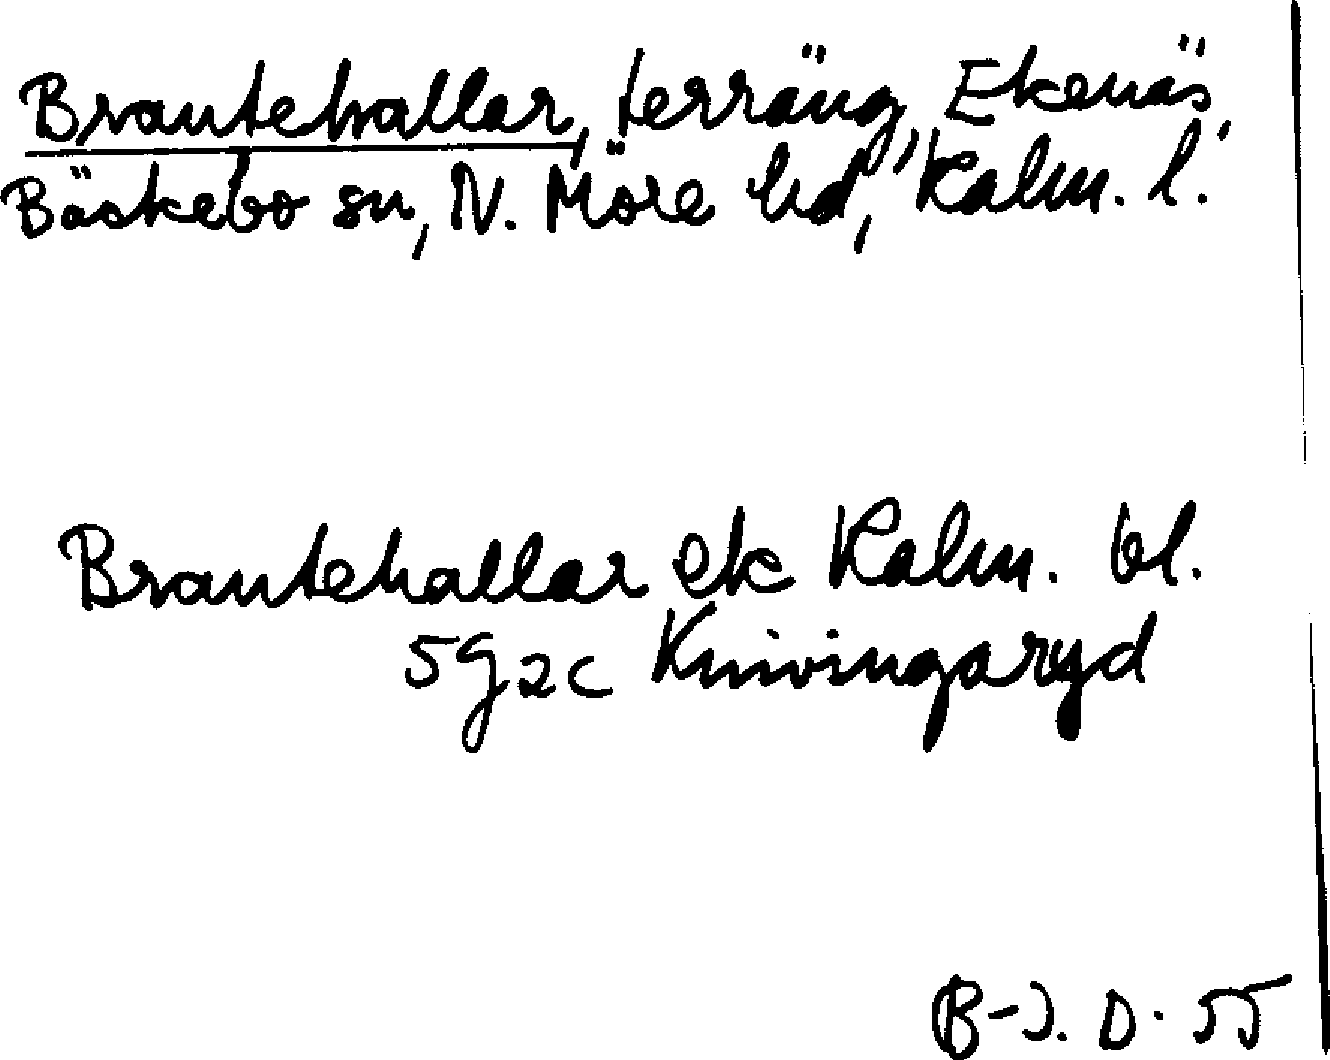 Brantehallar, terräng, Ekenäs,
Bäckebo sn, N. Möre hd, Kalm. l.
Brantehallar ek Kalm. bl.
5g2c Knivingaryd
B-J. D. 55